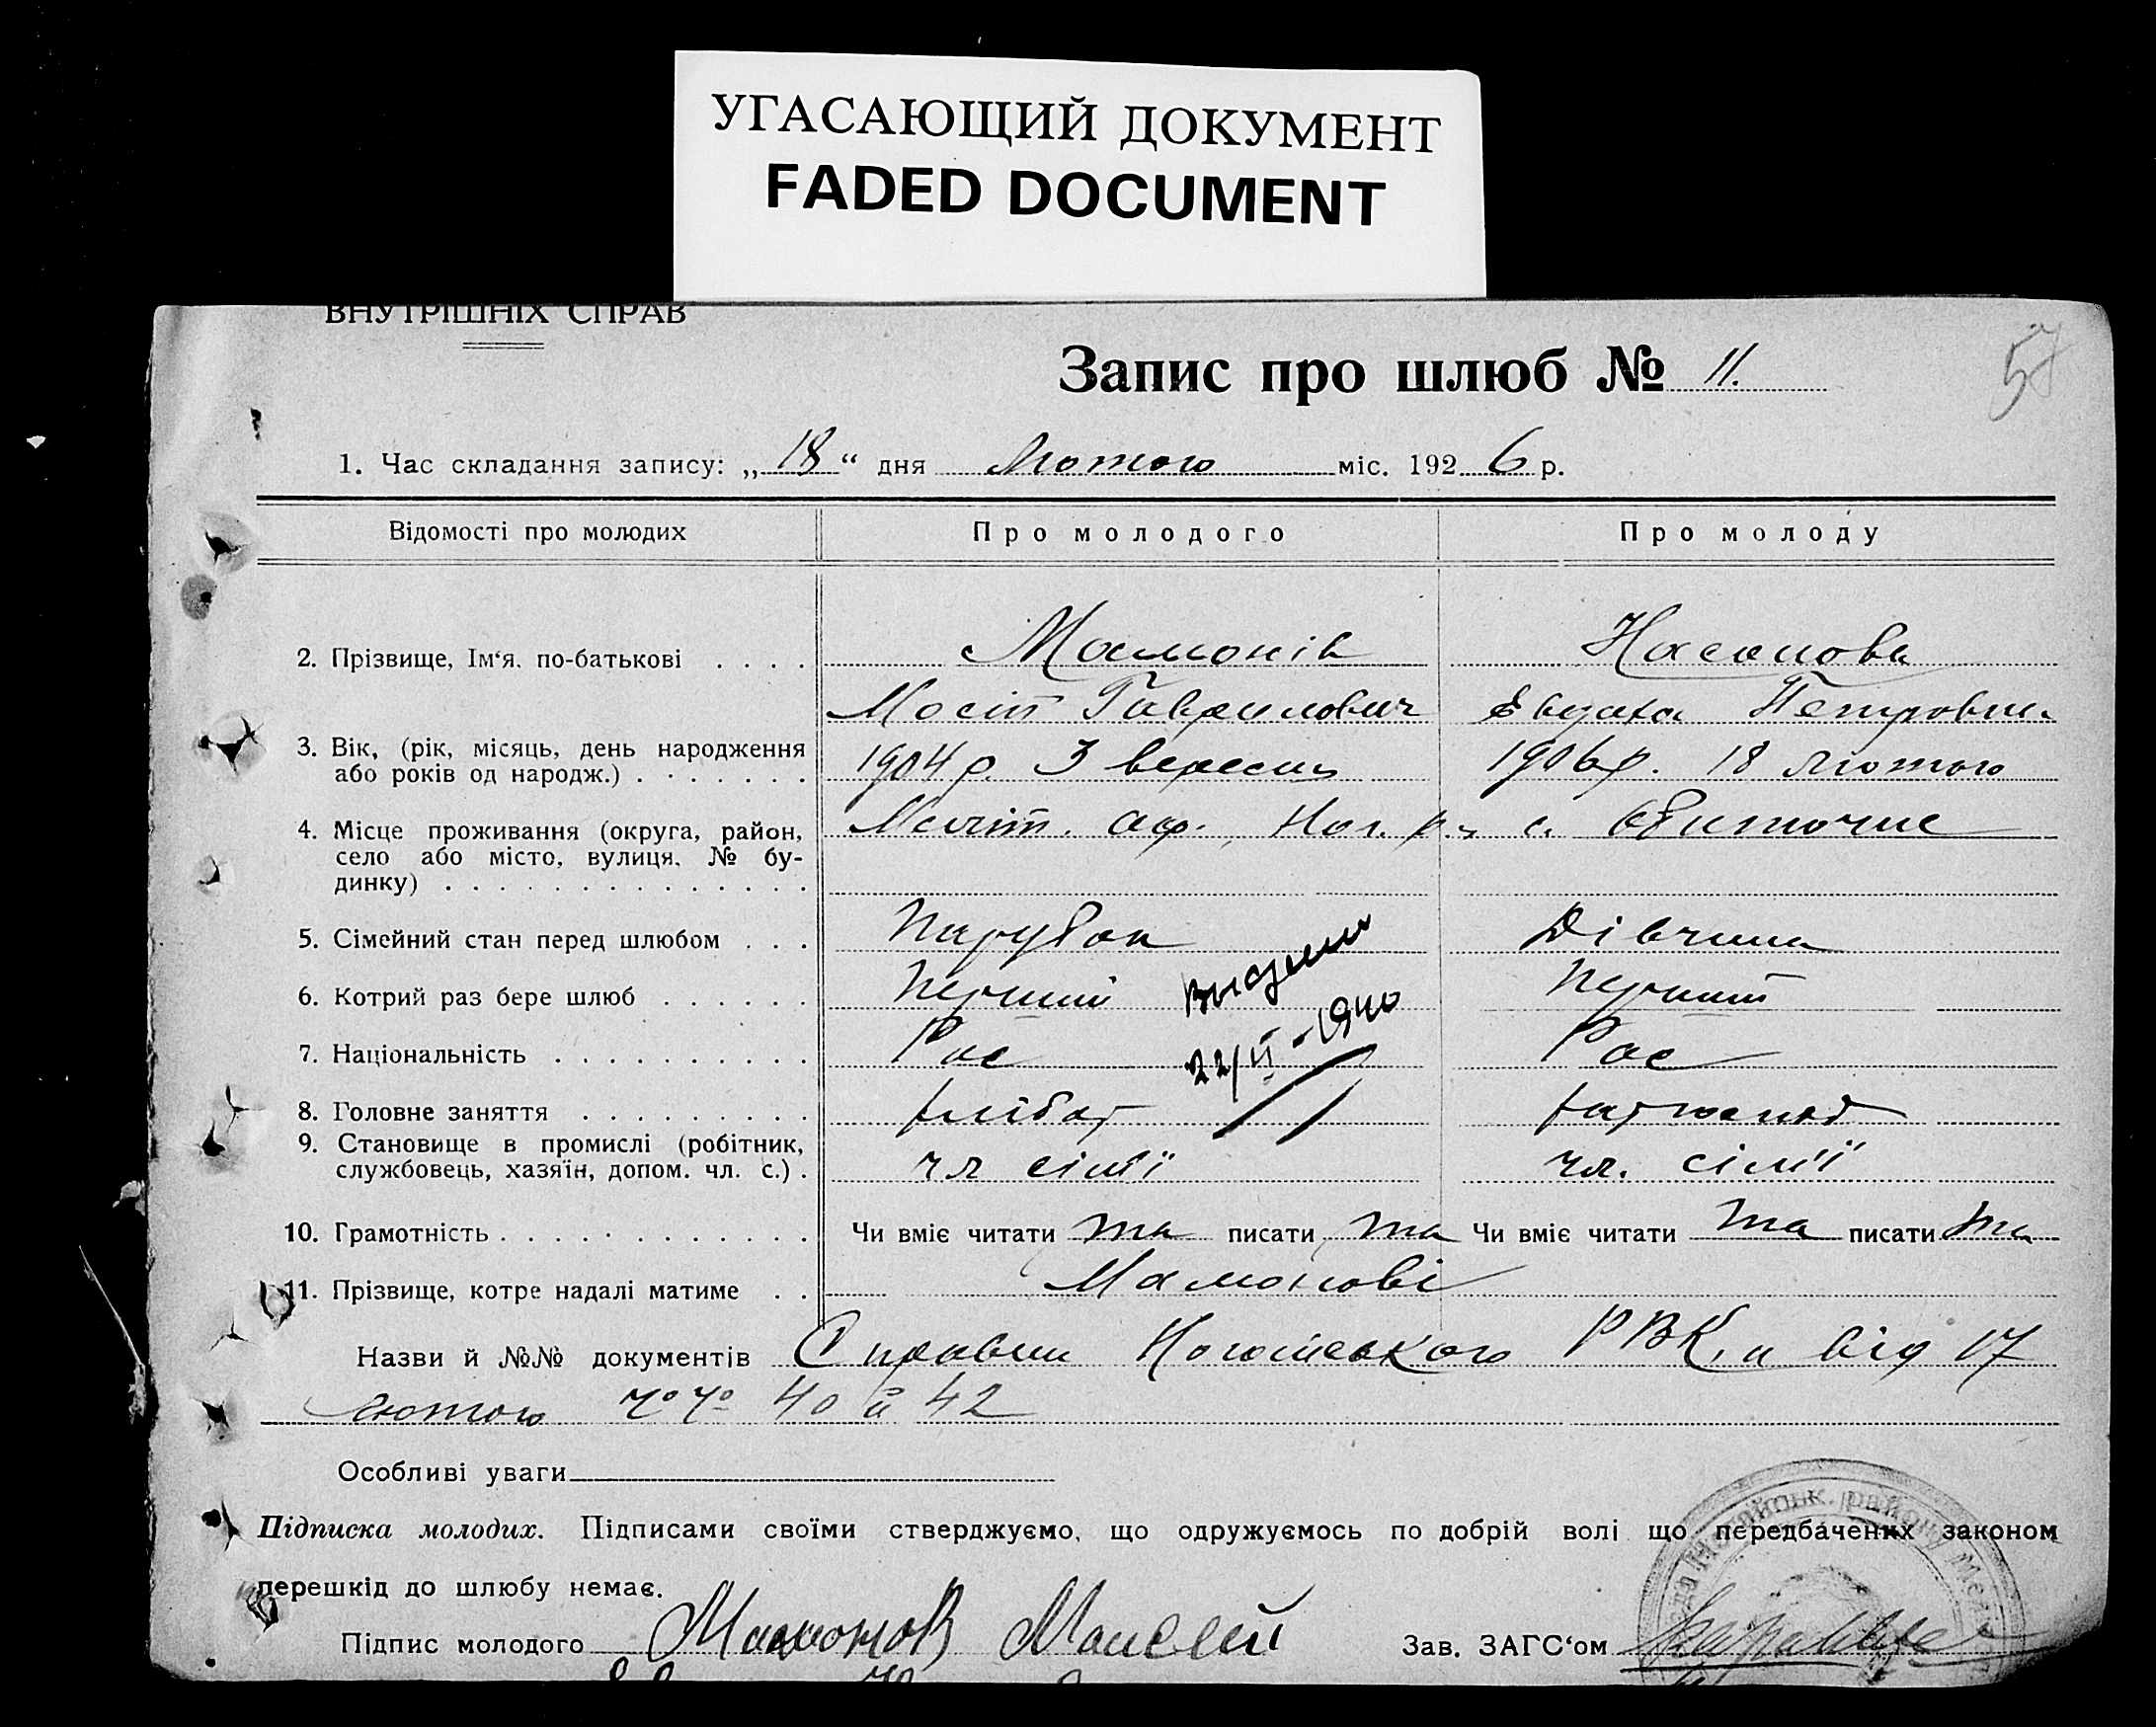 УГАСАЮЩИЙ ДОКУМЕНТ
FADED DOCUMENT
ВНУТРІШНІХ СПРАВ
57
Запис про шлюб № 11.
1. Час складання запису: „18“ дня Лютого міс. 1926 р.
Відомості про молодих Про молодого Про молоду
2. Прізвище, Ім‘я, по-батькові . . . . Мамонів
Мосій Гаврилович Петровна
3. Вік, (рік, місяць, день народження
або років од народж.) . . . . . . . 1904 р. 3 вересня 1906 р. 18 лютого
4. Місце проживання (округа, район,
село або місто, вулиця, № бу-
динку) . . . . . . . . . . . . . . Меліт. окр. Ног. р. с. Обиточне
5. Сімейний стан перед шлюбом . . . Парубок Дівчина
6. Котрий раз бере шлюб . . . . . . Перший Перший
7. Національність . . . . . . . . . . Рос Рос
22/II-1940
8. Головне заняття . . . . . . . . . хлібор
9. Становище в промислі (робітник,
службовець, хазяїн, допом. чл. с.) . чл сім'ї чл. сім'ї
10. Грамотність . . . . . . . . . . . . Чи вміє читати та писати та Чи вміє читати та писати та
11. Прізвище, котре надалі матиме . . Мамонові
Назви й №№ документів Справки Ногайського РВК,а від 17
лютого №№ 40 й 42
Особливі уваги
Підписка молодих. Підписами своїми стверджуємо, що одружуємось по добрій волі що передбачених законом
перешкід до шлюбу немає.
Підпис молодого Мамонов Моисей Зав. ЗАГС‘ом